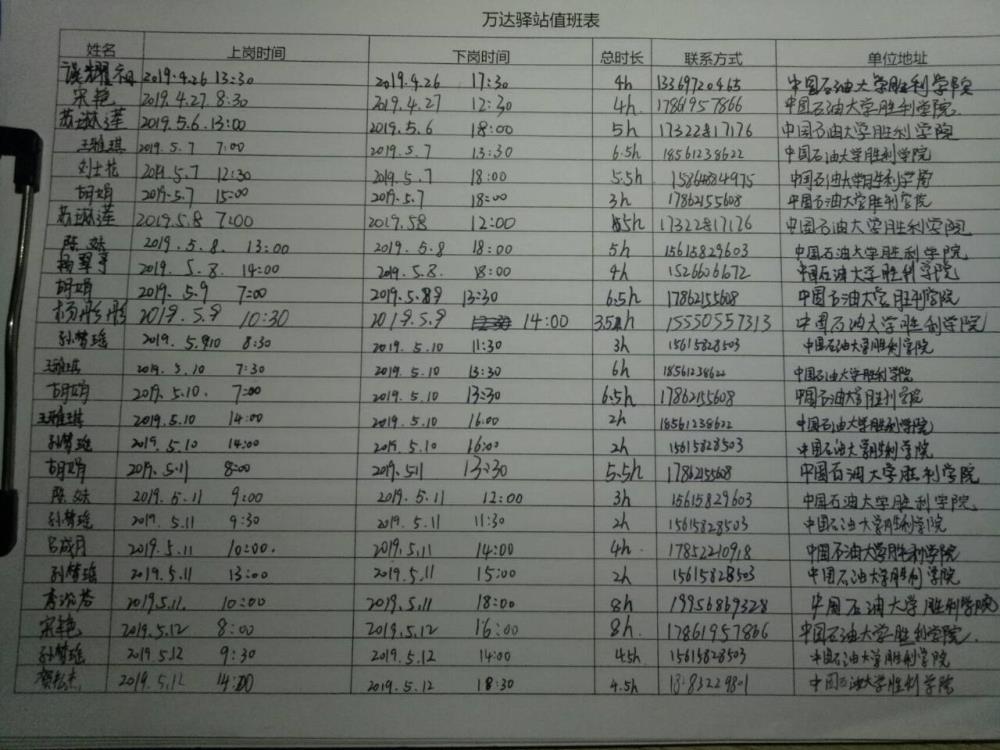 万达驿站值班表
姓名 上岗时间 下岗时间 总时长 联系方式 单位地址
2019.4.26 13:30 2019.4.26 17:30 4h 13397720465 中国石油大学胜利学院
宋艳 2019.4.27 8:30 2019.4.27 12:30 4h 17861957866 中国石油大学胜利学院
苏淑莲 2019.5.6.13:00 2019.5.6 18:00 5h 17322817176 中国石油大学胜利学院
王雅琪 2019.5.7 7:00 2019.5.7 13:30 6.5h 18561238622 中国石油大学胜利学院
刘士花 2019.5.7 12:30 2019.5.7 18:00 5.5h 中国石油大学胜利学院
胡娟 2019.5.7 15:00 2019.5.7 18:00 3h 17862155608 中国石油大学胜利学院
苏淑莲 2019.5.8 7:00 2019.5.8 12:00 5h 17322817176 中国石油大学胜利学院
陈姝 2019.5.8. 13:00 2019.5.8 18:00 5h 15615829603 中国石油大学胜利学院
2019.5.8. 14:00 2019.5.8. 18:00 4h 1526606672 中国石油大学胜利学院
胡娟 2019.5.9 7:00 2019.5.9 13:30 6.5h 17862155608 中国石油大学胜利学院
杨彤彤 2019.5.9 10:30 2019.5.9 14:00 3.5h 15550557313 中国石油大学胜利学院
孙梦瑶 2019.5.10 8:30 2019.5.10 11:30 3h 15615828503 中国石油大学胜利学院
王雅琪 2019.5.10 7:30 2019.5.10 13:30 6h 18561238622 中国石油大学胜利学院
胡娟 2019.5.10. 7:00 2019.5.10 13:30 6.5h 17862155608 中国石油大学胜利学院
王雅琪 2019.5.10 14:00 2019.5.10 16:00 2h 18561238622 中国石油大学胜利学院
孙梦瑶 2019.5.10 14:00 2019.5.10 16:00 2h 15615828503 中国石油大学胜利学院
胡娟 2019.5.11 8:00 2019.5.11 13:30 5.5h 17862155608 中国石油大学胜利学院
陈姝 2019.5.11 9:00 2019.5.11 12:00 3h 15615829603 中国石油大学胜利学院
孙梦瑶 2019.5.11 9:30 2019.5.11 11:30 2h 15615828503 中国石油大学胜利学院
吕成月 2019.5.11 10:00. 2019.5.11 14:00 4h 17852210918 中国石油大学胜利学院
孙梦瑶 2019.5.11 13:00 2019.5.11 15:00 2h 15615828503 中国石油大学胜利学院
2019.5.11. 10:00 2019.5.11 18:00 8h 19956869328 中国石油大学胜利学院
宋艳 2019.5.12 8:00 2019.5.12 16:00 8h 17861957866 中国石油大学胜利学院.
孙梦瑶 2019.5.12 9:30 2019.5.12 14:00 4.5h 15615828503 中国石油大学胜利学院
2019.5.12 14:00 2019.5.12 18:30 4.5h 18283229801 中国石油大学胜利学院